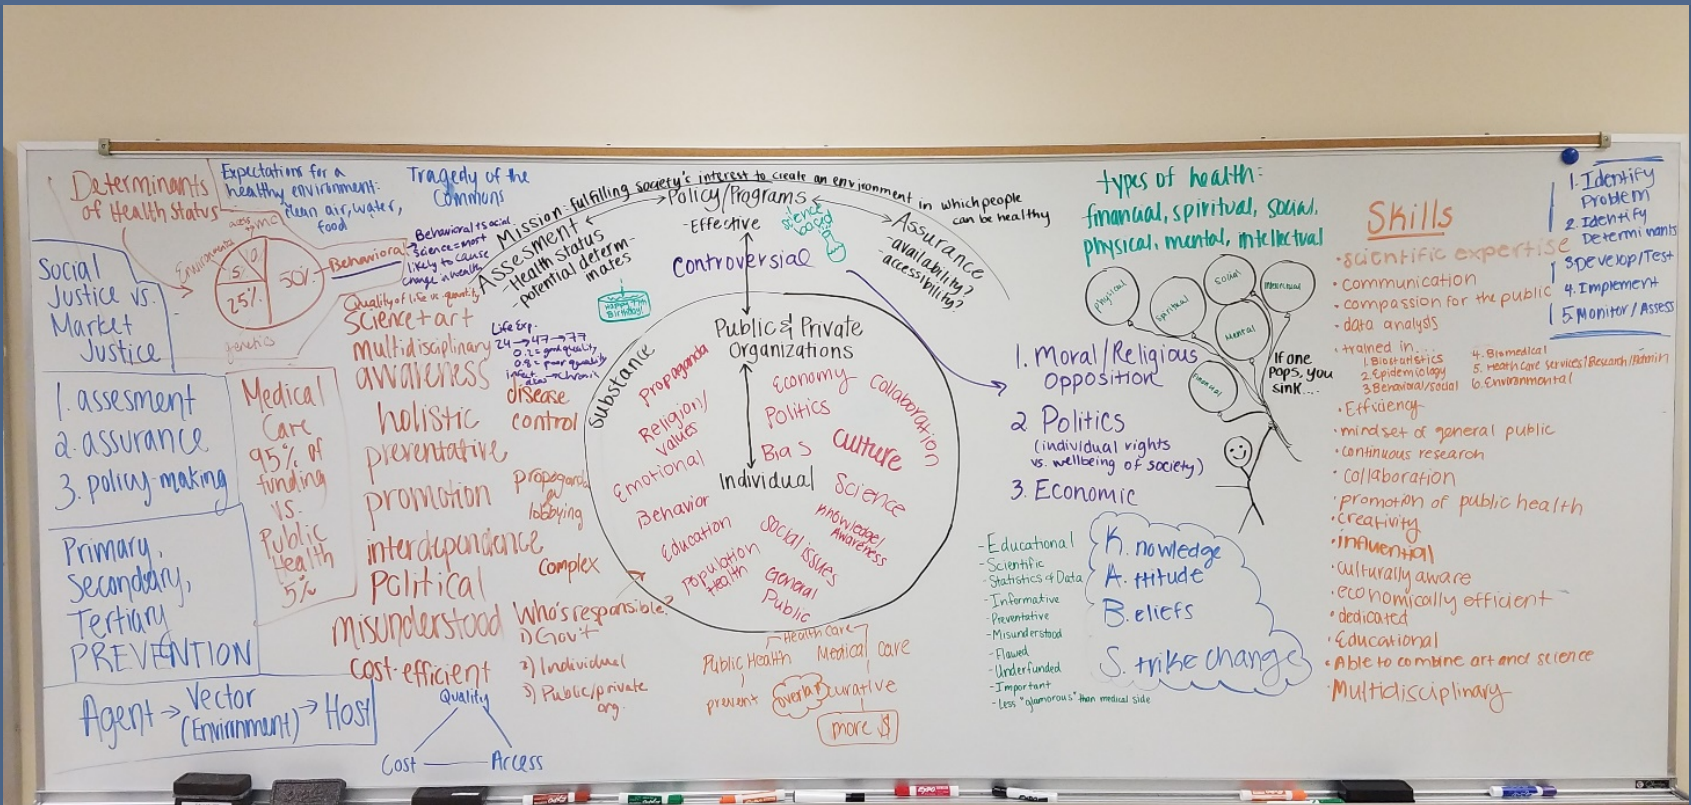 Determinants
of Health Status
Expectations for a
healthy environment:
clean air, water,
food
Tragedy of the
Commons
Environmental
access
mc
5%
25%
50%
genetics
Behavioral
Behavioral + social
science = most
likely to cause
change in health
Social
Justice vs.
Market
Justice
1. assesment
2. assurance
3. policy-making
Primary,
Secondary,
Tertiary
PREVENTION
Agent → Vector → Host
(Environment)
Medical
Care
95% of
funding
vs.
Public
Health
5%
Quality of life vs. quantity
Science + art
multidisciplinary
awareness
holistic
preventative
promotion
interdependence
Political
misunderstood
cost-efficient
Life Exp.
24 → 47 → 77
0.2 = good quality
0.8 = poor quality
infect. → chronic
disease
control
lobbying
complex
Who's responsible?
1) Gov't
2) Individual
3) Public/private
org.
Quality
Cost
Access
Mission: fulfilling society's interest to create an environment in which people
can be healthy
Assesment
-Health Status
-potential determ-
inates
Policy/Programs
-Effective
science
based
Assurance
-availability?
accessibility?
Happy
Birthday!
Controversial
Substance
Public & Private
Organizations
Individual
Propaganda
Religion/
values
Emotional
Behavior
Education
Population
Health
Economy
Politics
Bias
Culture
Collaboration
Science
Knowledge/
Awareness
Social issues
General
Public
Health Care
Public Health
Medical Care
prevent
overlap
curative
more $
types of health:
financial, spiritual, social,
physical, mental, intellectual
Physical
Spiritual
Social
Intellectual
Mental
Financial
If one
pops, you
sink...
1. Moral/Religious
opposition
2 Politics
(individual rights
vs. wellbeing of society)
3. Economic
-Educational
-Scientific
-Statistics & Data
-Informative
-Preventative
-Misunderstood
-Flawed
-Underfunded
-Important
-Less "glamorous" than medical side
K. nowledge
A. ttitude
B. eliefs
S. trike change
Skills
•scientific expertise
•communication
•compassion for the public
•data analysis
•trained in...
1. Biostatistics
2. Epidemiology
3. Behavioral/social
4. Biomedical
5. Healthcare services/Research/Admin
6. Environmental
•Efficiency
•mindset of general public
•continuous research
•collaboration
•promotion of public health
•creativity
•influential
•culturally aware
•economically efficient
•dedicated
•Educational
•Able to combine art and science
•Multidisciplinary
1. Identify
Problem
2. Identify
Determinants
3 Develop/Test
4. Implement
5. Monitor/Assess
EXPO